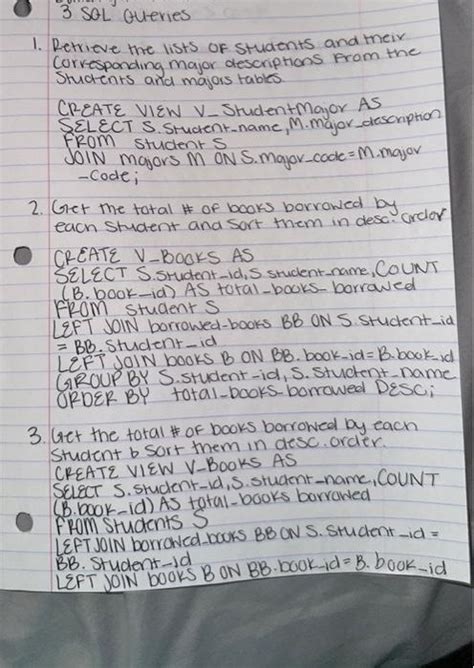 3 SQL Queries
1. Retrieve the lists of students and their
corresponding major descriptions from the
Students and majors tables
CREATE VIEW V_StudentMajor AS
SELECT S.student_name, M.major_description
FROM student S
JOIN majors M ON S.major_code = M.major
_code;
2. Get the total # of books borrowed by
each student and sort them in desc. order
CREATE V_Books AS
SELECT S.student_id, S student_name, COUNT
(B.book_id) AS total_books_borrowed
FROM student S
LEFT JOIN borrowed_books BB ON S.student_id
= BB.student_id
LEFT JOIN books B ON BB.book_id = B.book_id
GROUP BY S.student_id, S.student_name
ORDER BY total_books_borrowed DESC;
3. Get the total # of books borrowed by each
student & sort them in desc. order.
CREATE VIEW V_Books AS
SELECT S.student_id, S.student_name, COUNT
(B.book_id) AS total_books borrowed
FROM Students S
LEFT JOIN borrowed_books BB ON S.student_id =
BB.student_id
LEFT JOIN books B ON BB.book_id = B.book_id